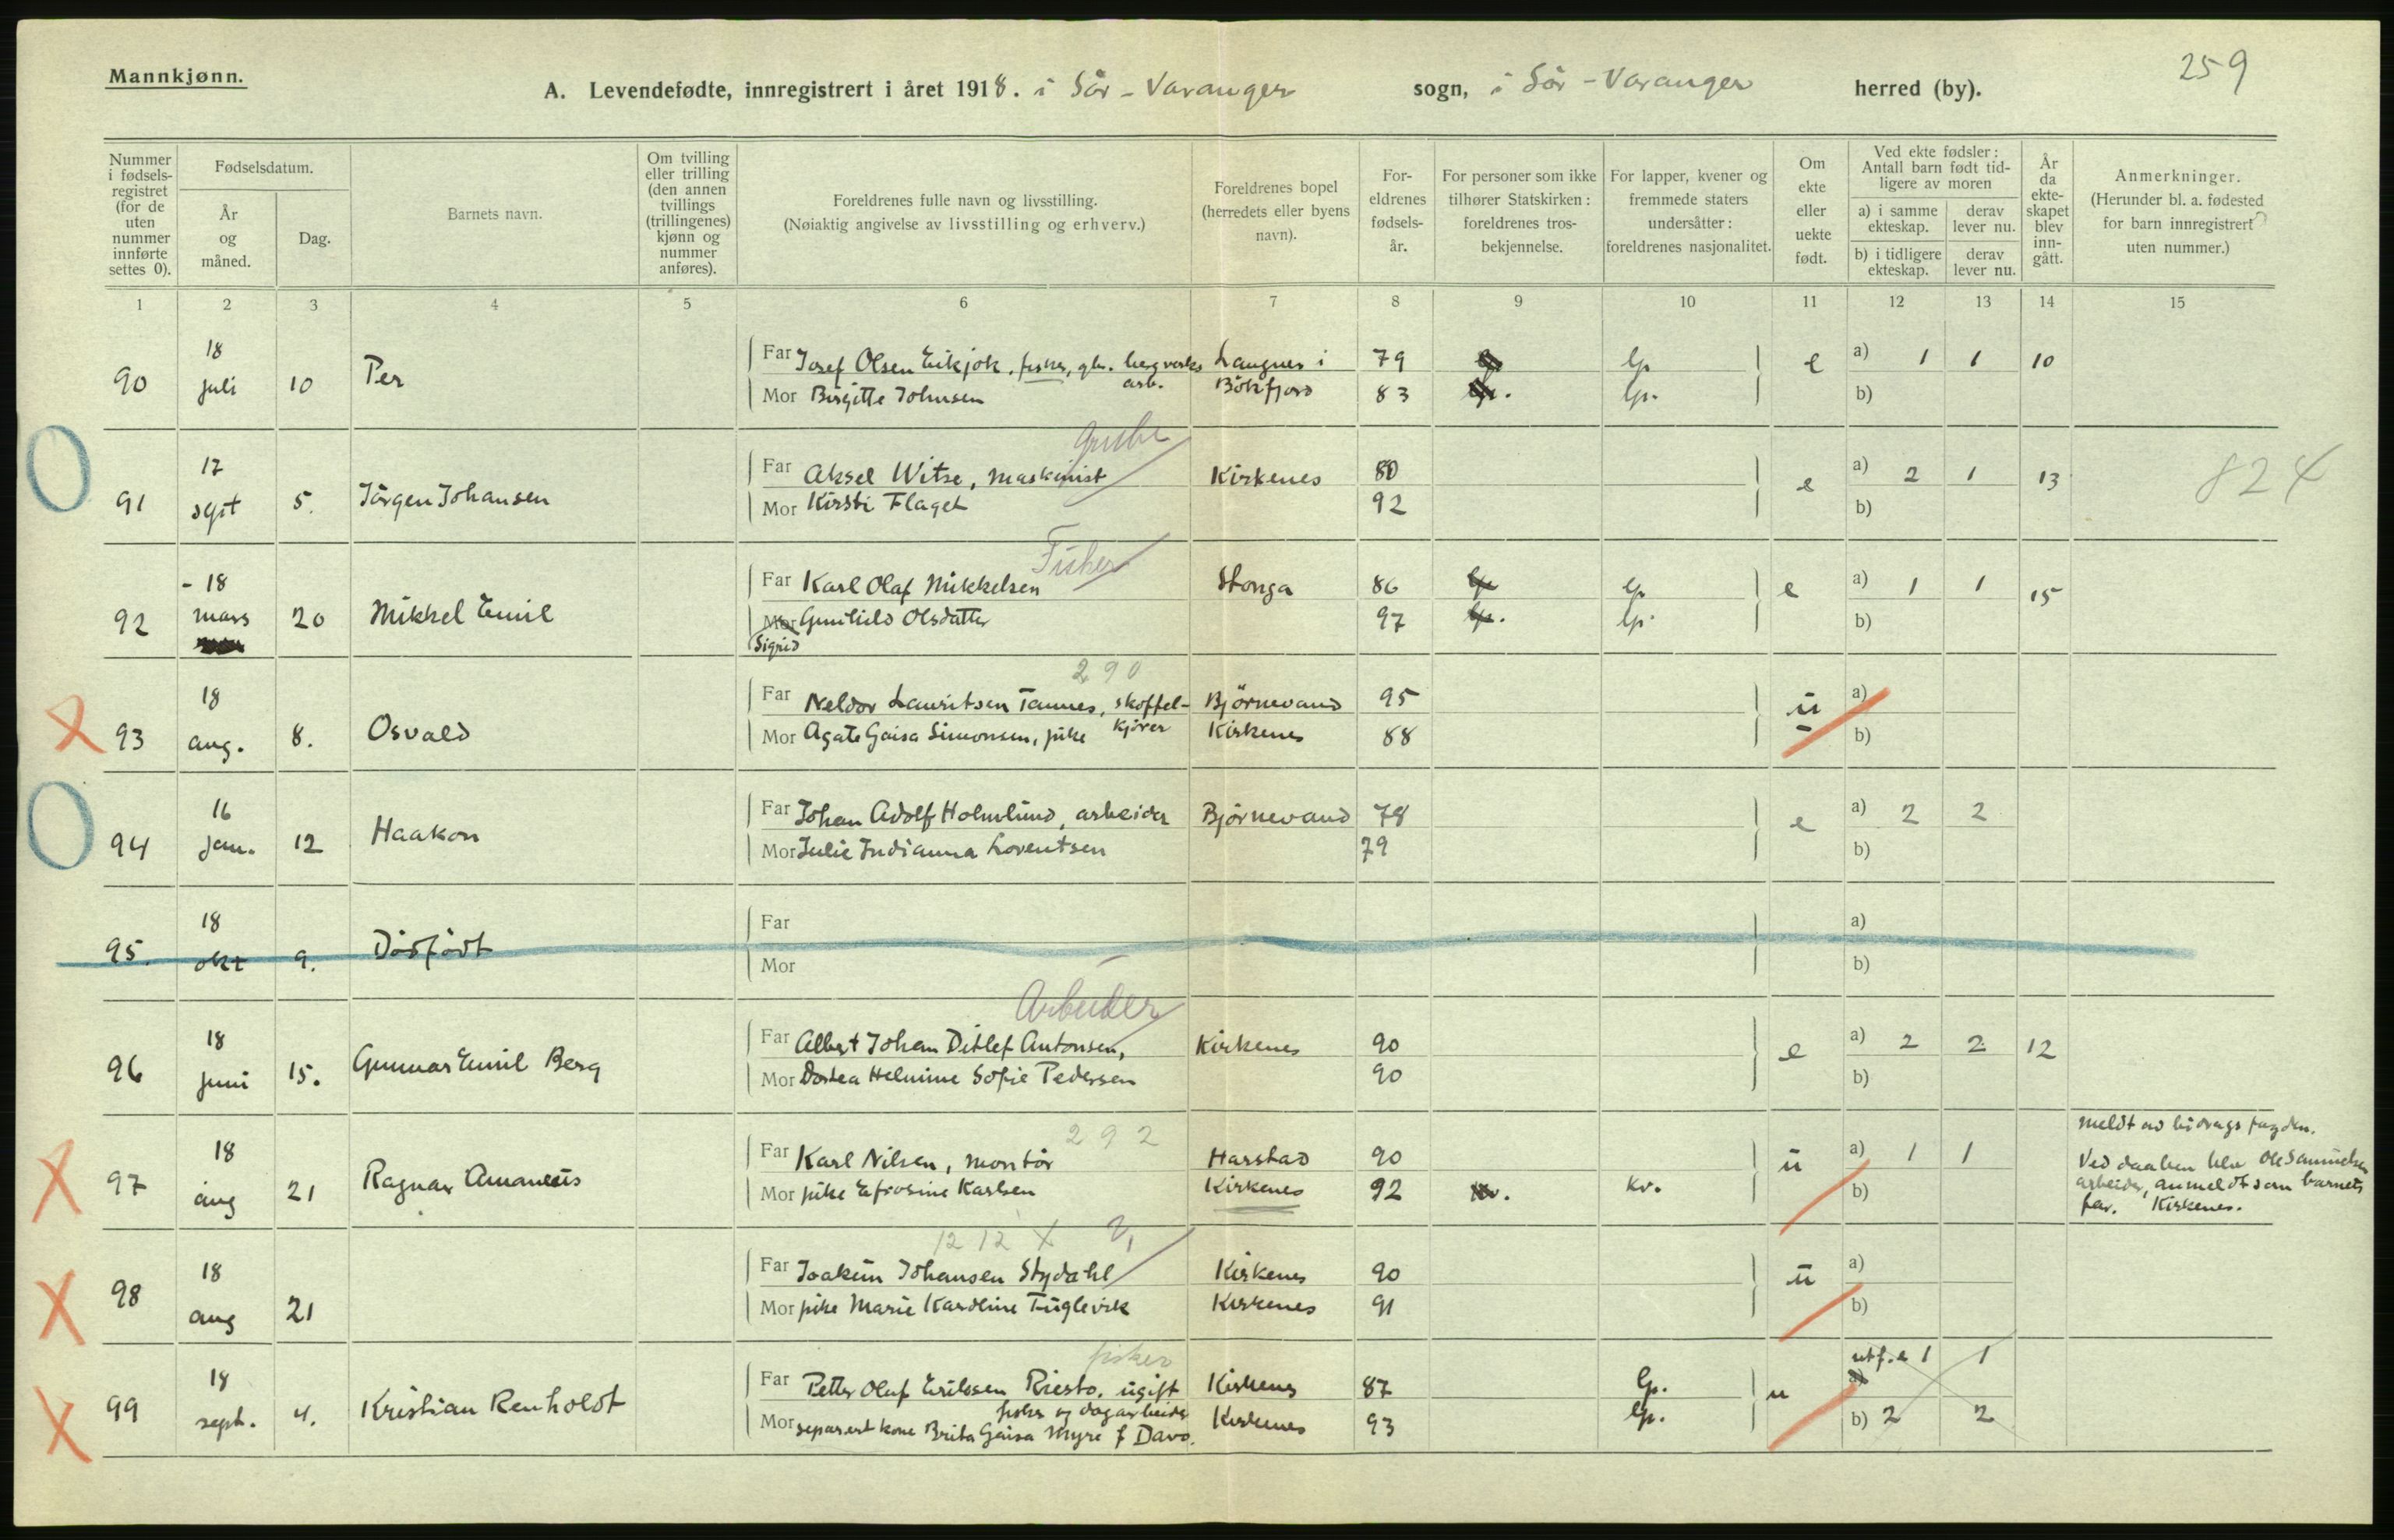 Mannkjønn.
259
A. Levendefødte, innregistrert i året 1918. i Sör-Varanger sogn, i Sör-Varanger herred (by).
Nummer i fødselsregistret (for de uten nummer innførte settes 0).
Fødselsdatum.
År og måned.
Dag.
Barnets navn.
Om tvilling eller trilling (den annen tvillings (trillingenes) kjønn og nummer anføres).
Foreldrenes fulle navn og livsstilling.
(Nøiaktig angivelse av livsstilling og erhverv.)
Foreldrenes bopel (herredets eller byens navn).
Foreldrenes fødselsår.
For personer som ikke tilhører Statskirken: foreldrenes trosbekjennelse.
For lapper, kvener og fremmede staters undersåtter: foreldrenes nasjonalitet.
Om ekte eller uekte født.
Ved ekte fødsler: Antall barn født tidligere av moren
a) i samme ekteskap.
derav lever nu.
b) i tidligere ekteskap.
derav lever nu.
År da ekteskapet blev inngått.
Anmerkninger.
(Herunder bl. a. fødested for barn innregistrert uten nummer.)
1 2 3 4 5 6 7 8 9 10 11 12 13 14 15
90 18 juli 10 Per
Far Josef Olsen Eikjok, fisker, gbr. bergverks arb. Langnes i 79 lp e a) 1 1 10
Mor Birgitte Johnsen Bökfjord 83 lp. b)
Grube
91 17 sept 5. Jörgen Johansen
Far Aksel Witse, maskinist Kirkenes 80 e a) 2 1 13 824
Mor Kirsti Flaget 92 b)
Fisker
92 -18 mars 20 Mikkel Emil
Far Karl Olaf Mikkelsen Stonga 86 lp e a) 1 1 15
Mor Gunhild Olsdatter 97 lp. b)
Sigrid
290
93 18 aug. 8. Osvald
Far Neldor Lauritsen Tannes, skoffelkjörer Björnevand 95 u a)
Mor Agate Gaisa Simonsen, pike Kirkenes 88 b)
94 16 jan. 12 Haakon
Far Johan Adolf Holmlund, arbeider Björnevand 78 e a) 2 2
Mor Julie Indianna Lorentsen 79 b)
95. 18 okt 9. Dödfödt
Far a)
Mor b)
Arbeider
96 18 juni 15. Gunnar Emil Berg
Far Albert Johan Ditlef Antonsen, Kirkenes 90 e a) 2 2 12
Mor Dortea Helmine Sofie Pedersen 90 b)
292
97 18 aug 21 Ragnar Amaneus
Far Karl Nilsen, montör Harstad 90 u a) 1 1
Mor pike Efrosine Karlsen Kirkenes 92 kv. kv. b)
meldt av bidragsfogden.
Ved daaben blev Ole Samuelsen
arbeider, anmeldt som barnets
far. Kirkenes.
1212 X
98 18 aug 21
Far Joakim Johansen Stydahl Kirkenes 90 u a)
Mor pike Marie Karoline Fuglevik Kirkenes 91 b)
fisker
99 18 sept. 4. Kristian Renholdt
Far Petter Olaf Eriksen Riesto, ugift fisker og dagarbeider Kirkenes 87 lp. u a) 1 1
Mor separert kone Brita Gaisa Myre f Davo. Kirkenes 93 lp. b) 2 2